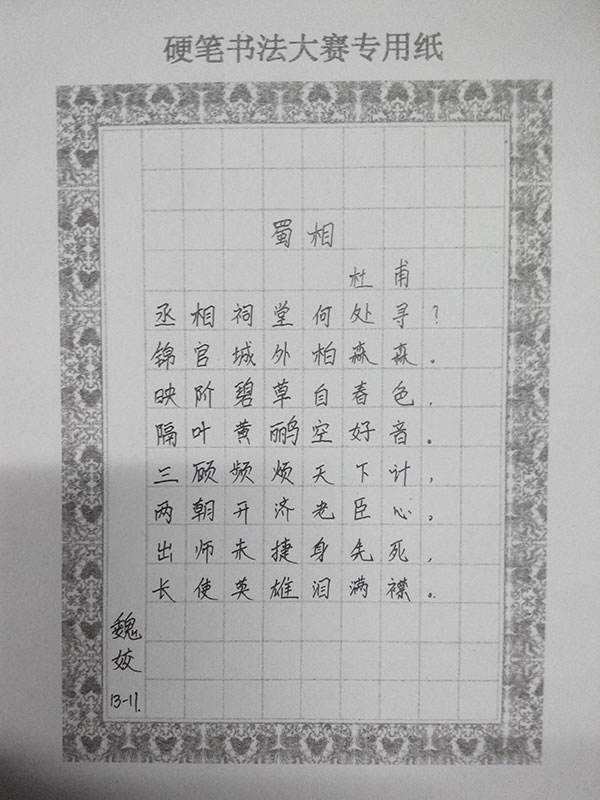 硬笔书法大赛专用纸
蜀相
杜甫
丞相祠堂何处寻?
锦官城外柏森森。
映阶碧草自春色,
隔叶黄鹂空好音。
三顾频烦天下计,
两朝开济老臣心。
出师未捷身先死,
长使英雄泪满襟。
魏姣
13-11.